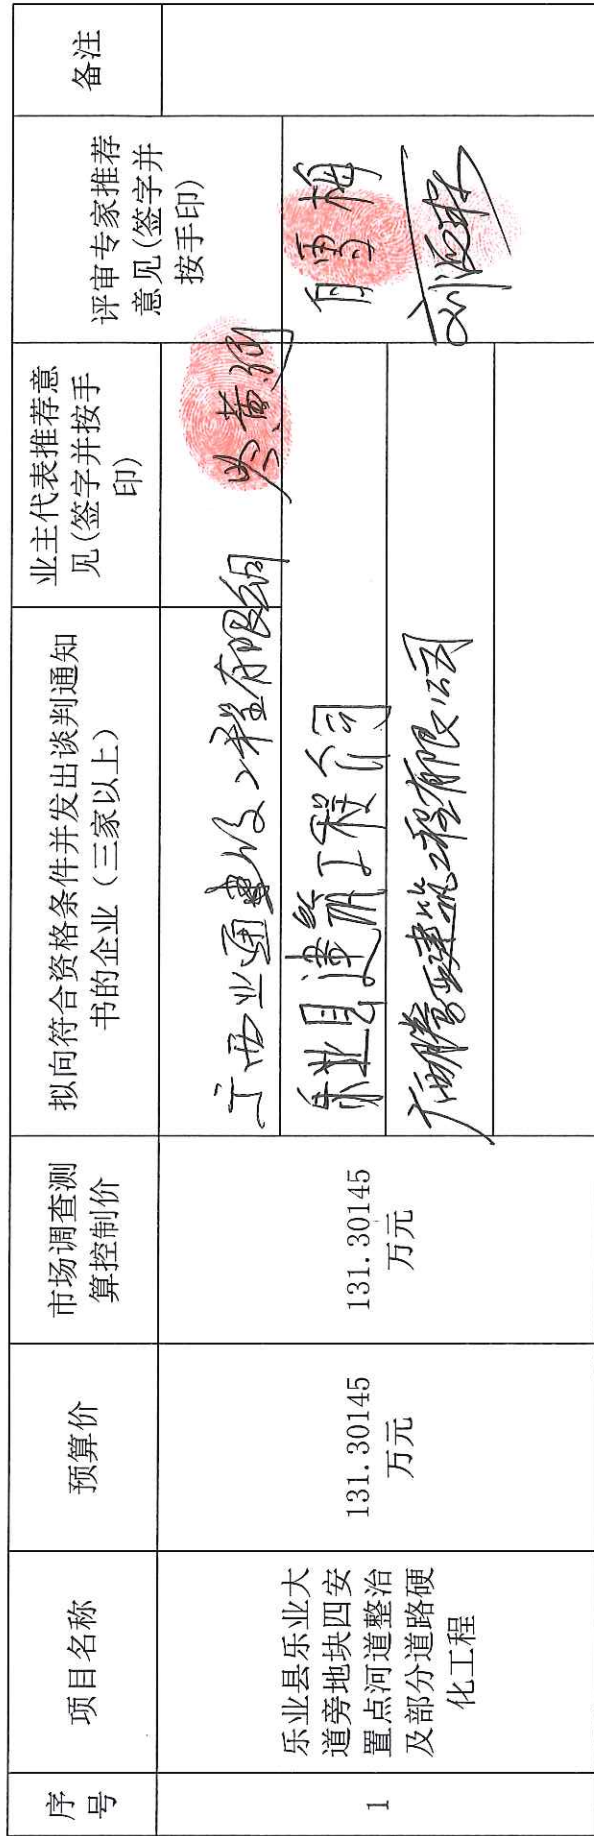 序
号
项目名称
预算价
市场调查测
算控制价
拟向符合资格条件并发出谈判通知
书的企业（三家以上）
业主代表推荐意
见(签字并按手
印)
评审专家推荐
意见(签字并
按手印)
备注
1
乐业县乐业大
道旁地块四安
置点河道整治
及部分道路硬
化工程
131.30145
万元
131.30145
万元
广西业通建设工程有限公司
乐业县建筑工程公司
建筑工程有限公司